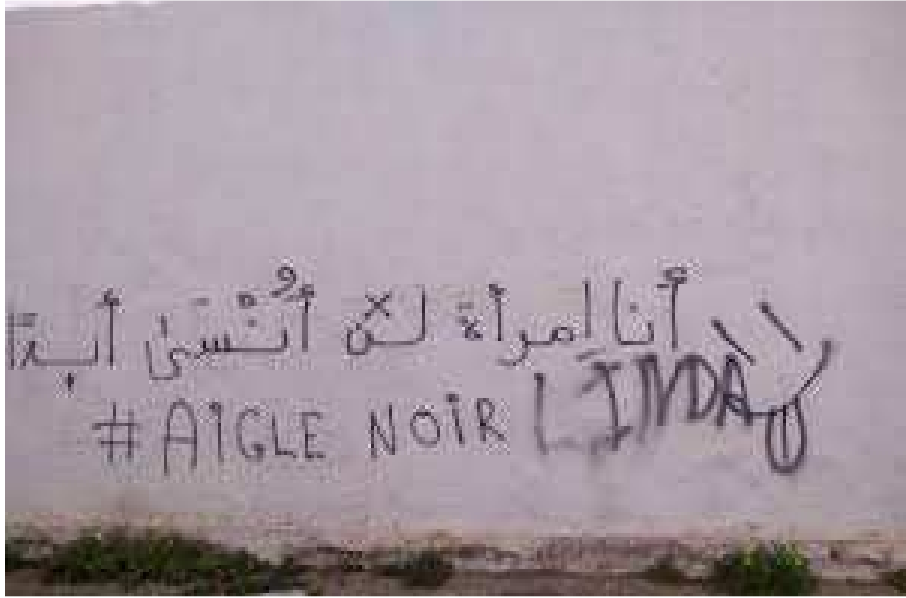 أنا امرأة لن أُنْسَى أبدًا
# AIGLE NOIR LINDA